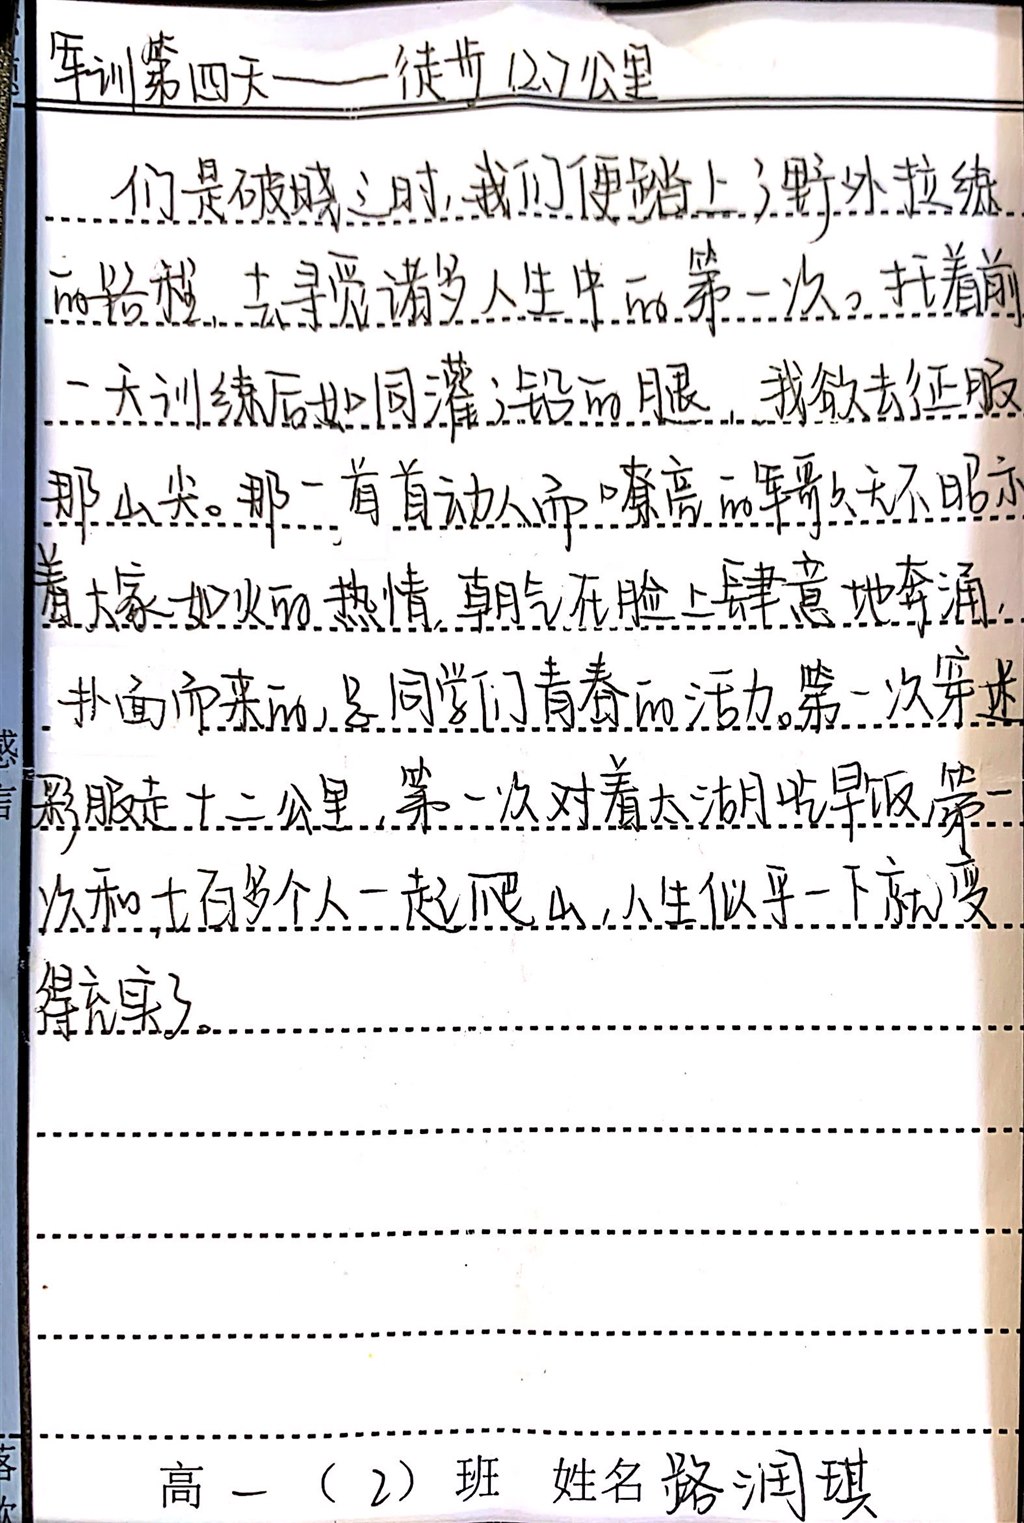 军训第四天——徒步12.7公里
们是破晓之时,我们便踏上了野外拉练
的路程,去寻觅诸多人生中的第一次。托着前
一天训练后如同灌注铅的腿,我欲去征服
那山尖。那一首首动人而嘹亮的军歌无不昭示
着大家如火的热情,朝气在脸上肆意地奔涌,
扑面而来的,是同学们青春的活力。第一次穿迷
彩服走十二公里,第一次对着太湖吃早饭,第一
次和七百多个人一起爬山,人生似乎一下就变
得充实了。
感言
高一(2)班 姓名 路润琪
落款